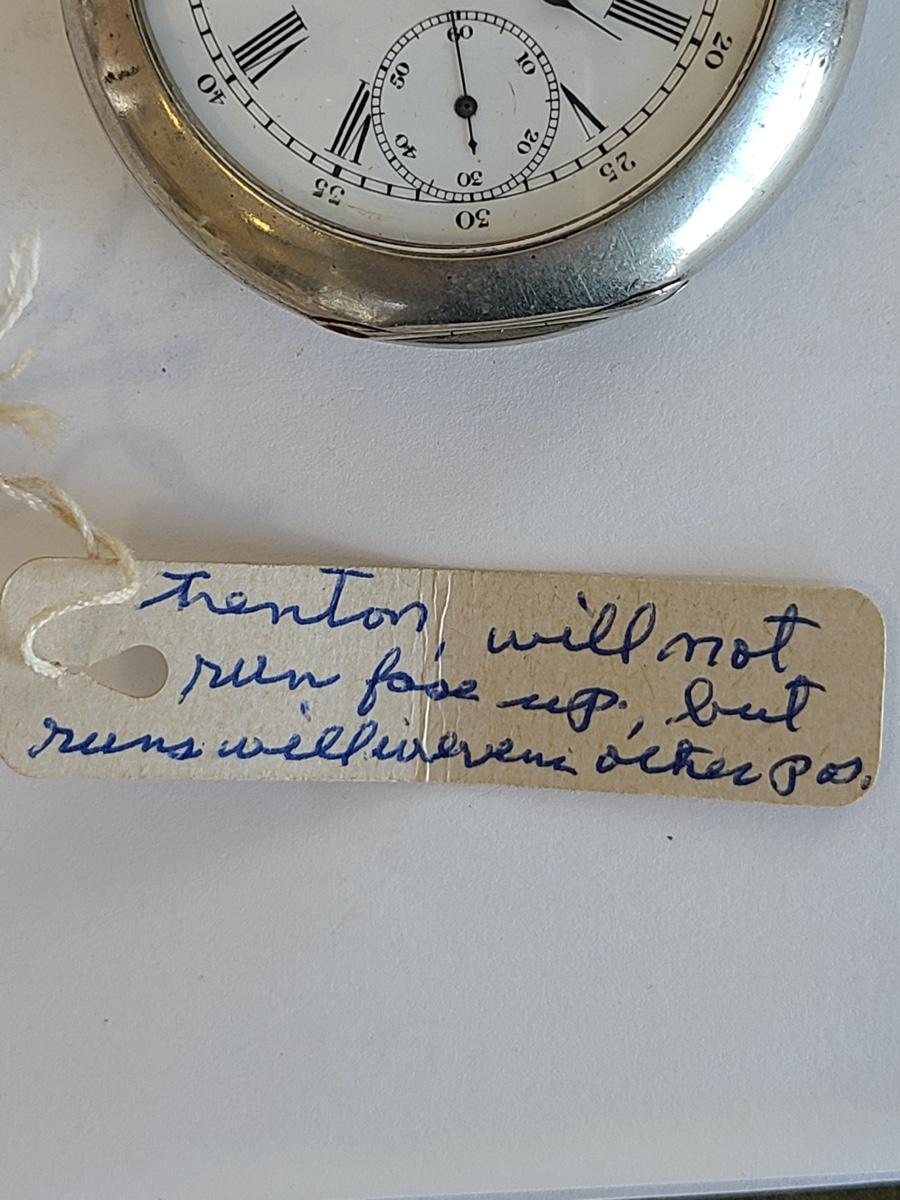 VIII
IIII
60
20
50
10
40
VII
V
40
20
25
30
35
30
Trenton, will not
run face up, but
runs well in every other pos.